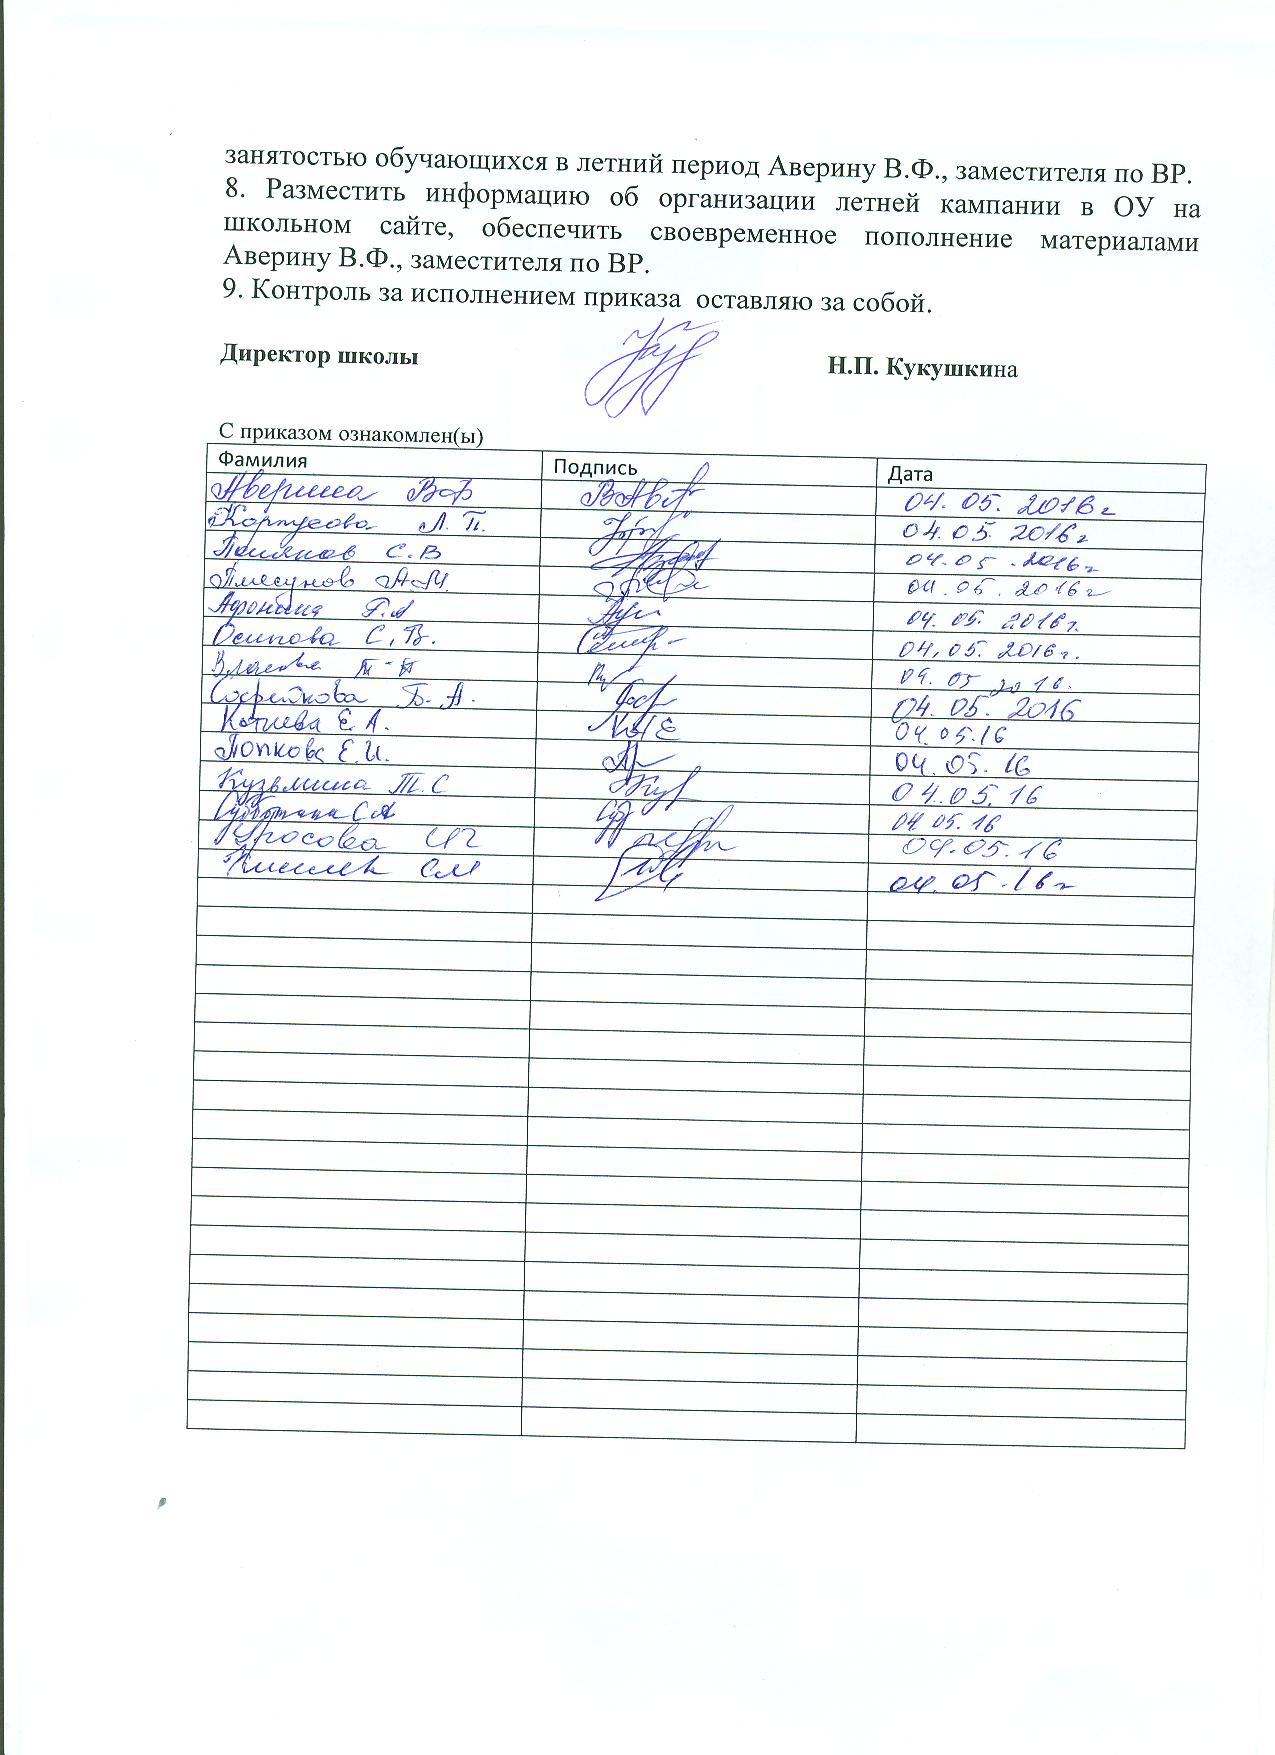 занятостью обучающихся в летний период Аверину В.Ф., заместителя по ВР.
8. Разместить информацию об организации летней кампании в ОУ на
школьном сайте, обеспечить своевременное пополнение материалами
Аверину В.Ф., заместителя по ВР.
9. Контроль за исполнением приказа оставляю за собой.
Директор школы Н.П. Кукушкина
С приказом ознакомлен(ы)
Фамилия Подпись Дата
Аверина В.Ф 04.05.2016г
Корпусова Л.П. 04.05.2016г
С.В 04.05.2016г
А.М. 04.05.2016г
Афонина Г.А 04.05.2016г.
Осипова С.В. 04.05.2016г.
Власова 04.05 2016.
Б.А. 04.05.2016
Е.А. 04.05.16
Попкова Е.И. 04.05.16
Кузьмина Т.С 04.05.16
Субботина С.А 04.05.16
04.05.16
СМ 04.05.16г